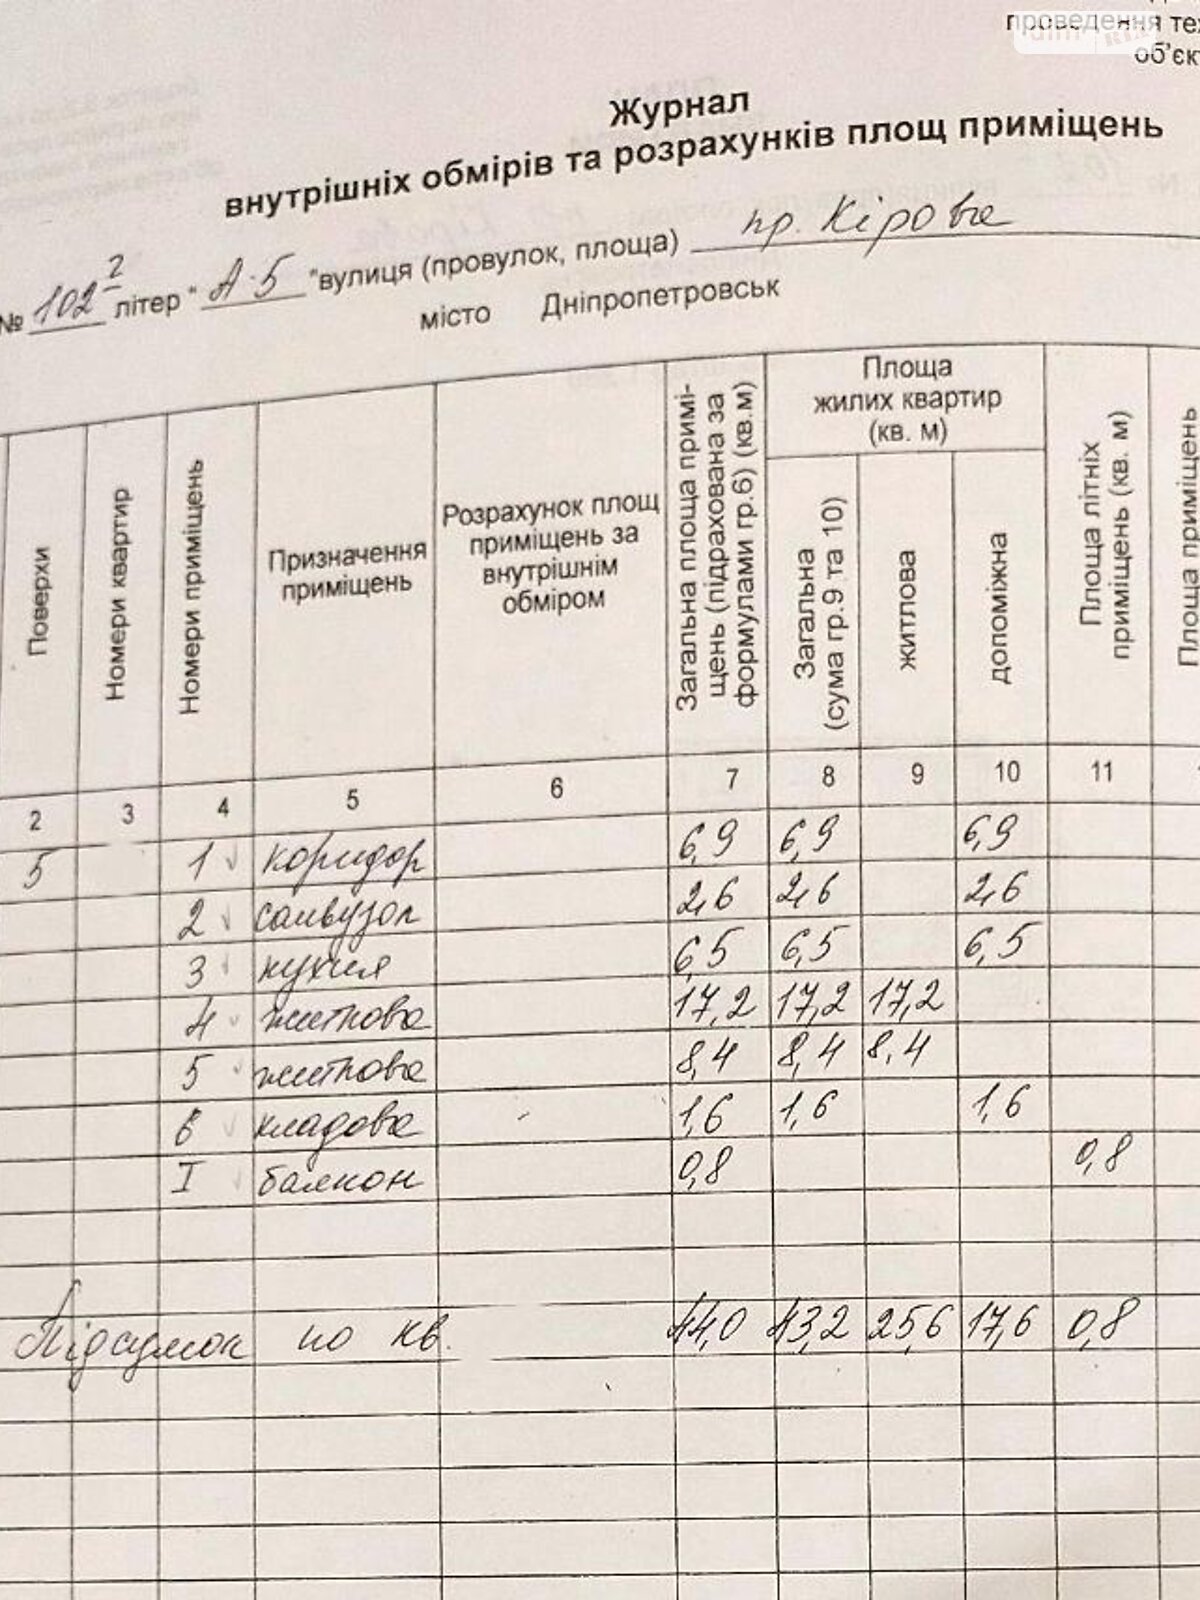 проведення тех
об'єк
Журнал
внутрішніх обмірів та розрахунків площ приміщень
№ 102 2 літер " А-5 "вулиця (провулок, площа) пр. Кірова
місто Дніпропетровськ
Поверхи
Номери квартир
Номери приміщень
Призначення
приміщень
Розрахунок площ
приміщень за
внутрішнім
обміром
Загальна площа примі-
щень (підрахована за
формулами гр.6) (кв.м)
Площа
жилих квартир
(кв. м)
Загальна
(сума гр.9 та 10)
житлова
допоміжна
Площа літніх
приміщень (кв. м)
Площа приміщень
2 3 4 5 6 7 8 9 10 11
5 1 коридор 6,9 6,9 6,9
2 санвузол 2,6 2,6 2,6
3 кухня 6,5 6,5 6,5
4 житлова 17,2 17,2 17,2
5 житлова 8,4 8,4 8,4
6 кладова 1,6 1,6 1,6
I балкон 0,8 0,8
Підсумок по кв. 44,0 43,2 25,6 17,6 0,8